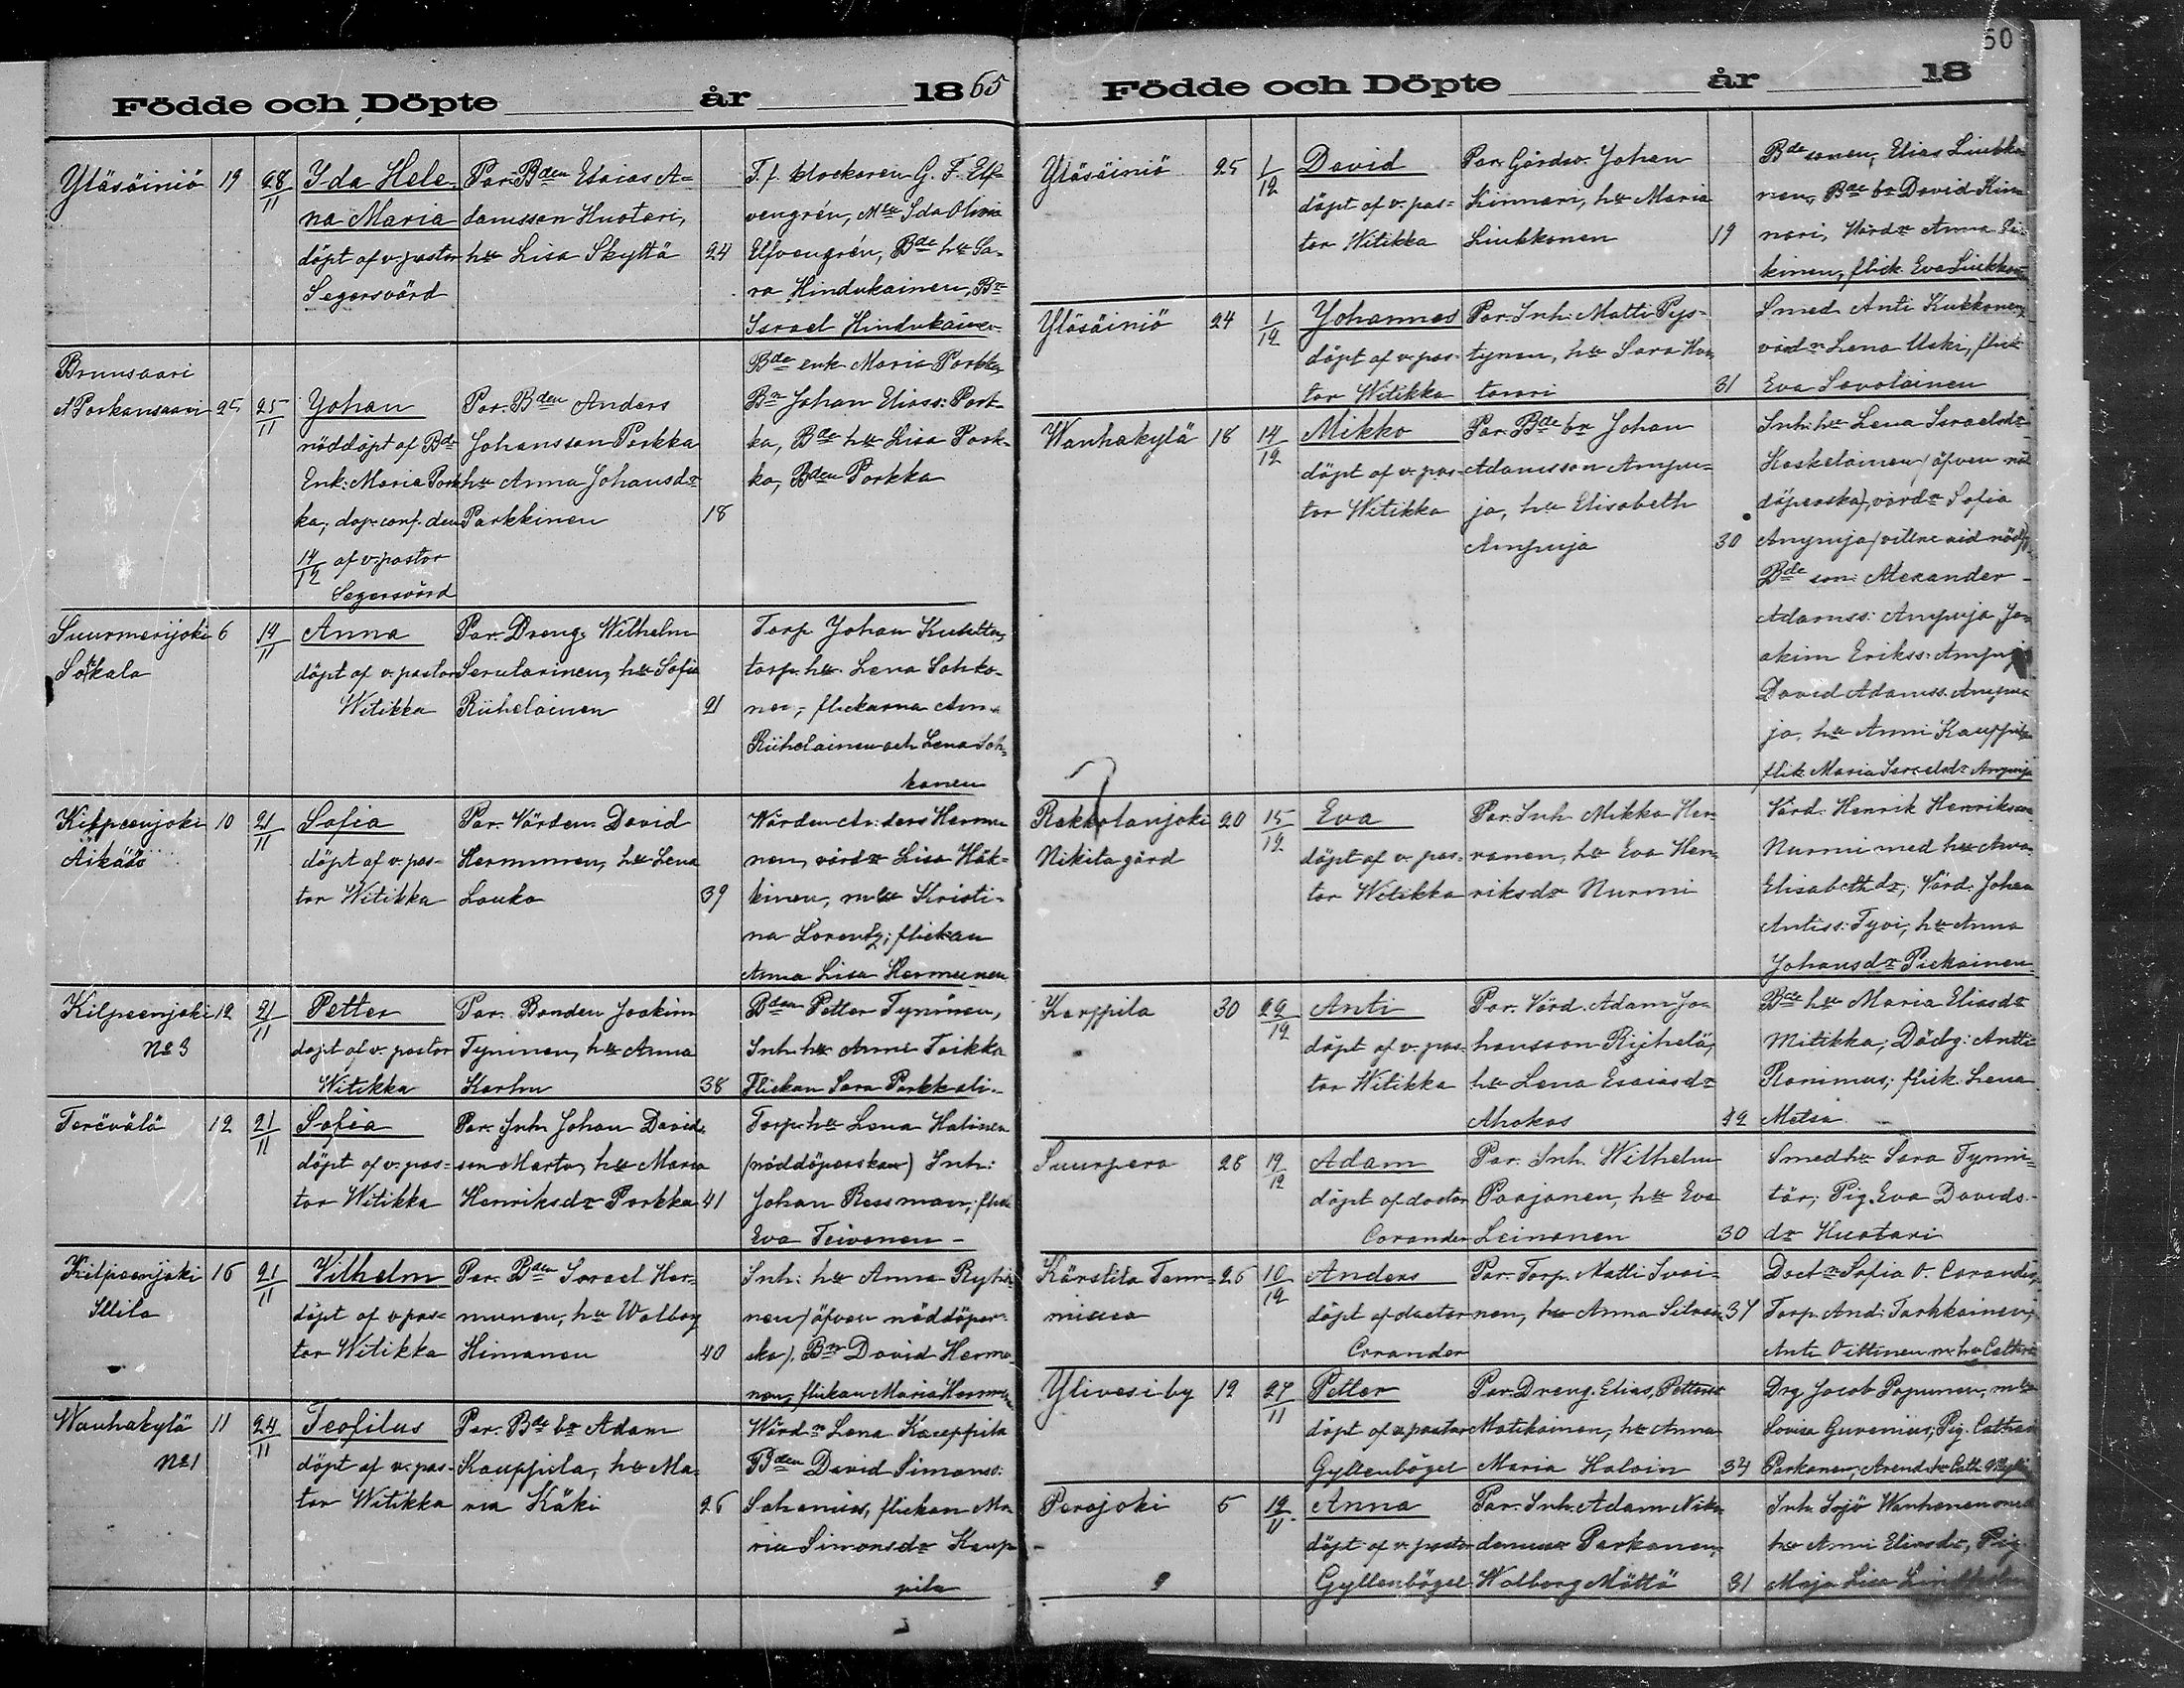 Födde och Döpte år 1865
Yläsäiniö 19 28/11 Ida Hele-
na Maria
döpt af v. pastor
Segersvärd
Par. Bden Esaias A-
damsson Huotari,
hu Lisa Skyttä 24
T. f. klockaren G. F. Elf-
vengrén, Mlle Ida Olivia
Elfvengrén, Bde hu Sa-
ra Hindukainen, Bn
Israel Hindukainen
Bruunsaari
o Porkansaari 25 25/11 Johan
nöddöpt af Bde
Enk: Maria Pork-
ka; dop conf. den
14/12 af v. pastor
Segersvärd
Par. Bden Anders
Johansson Porkka
hu Anna Johansdr
Parkkinen 18
Bde enk Maria Porkka,
Bn Johan Eliass: Pork-
ka, Bde hu Lisa Pork-
ka, Bden Porkka
Suurmerijoki 6 14/11 Anna
Sokala
döpt af v. pastor
Witikka
Par. Dreng. Wilhelm
hu Sofia
Riihelainen 21
Torp Johan
torp. hu Lena Sohko-
nen, flickorna Ann
Riihelainen och Lena Soh-
konen
Kilpeenjoki 10 21/11 Sofia
Äikääs
döpt af v. pas-
tor Witikka
Par. Värden David
Hermunen, hu Lena
Louko 39
Värden Anders Hermu
nen, värdn Lisa Häk-
kinen, mlle Kristi-
na Lorentz; flickan
Anna Lisa Hermunen
Kilpeenjoki 12 21/11 Petter
No 3
döpt af v. pastor
Witikka
Par. Bonden Joakim
Tyninen, hu Anna
Karhu 38
Bden Petter Tyninen,
Inh. hu Anni Toikka
Flickan Sara Parkkali
Terävälä 12 21/11 Sofia
döpt af v. pas-
tor Witikka
Par. Inh. Johan Davids
son Marto, hu Maria
Henriksdr Porkka 41
Torp. hu Lena Halinen
(nöddöperskan) Inh:
Johan Ressman, flick
Eva Teivonen
Kilpeenjoki 16 21/11 Vilhelm
Illila
döpt af v. pas-
tor Witikka
Par. Bden Israel Her-
munen, hu Walborg
Himanen 40
Inh: hu Anna Ryhä-
nen (äfven nöddöper-
ska), Bn David Hermu
nen, flickan Maria Hermunen
Wanhakylä 11 24/11 Teofilus
No 1
döpt af v. pas-
tor Witikka
Par. Bde br Adam
Kauppila, hu Ma-
ria Käki 26
Wärdn Lena Kauppila
Bden David Simonss:
flickan Ma
ria Simonsdr Kaup
pila
50
Födde och Döpte år 18
Yläsäiniö 25 1/12 David
döpt af v. pas-
tor Witikka
Par. Gårdsv. Johan
Kinnari, hu Maria
Liukkonen 19
Bde sonen, Elias Liukko
nen, Bde br David Kin
nari, Wärdn Anna
kinen, flick. Eva Liukkonen
Yläsäiniö 24 1/12 Johannes
döpt af v. pas-
tor Witikka
Par. Inh. Matti Pys-
tynen, hu Sara
31
Smed Anti Kukkonen,
värdn Lena Uski, flick
Eva Savolainen
Wanhakylä 18 14/12 Mikko
döpt af v. pas-
tor Witikka
Par. Bde br Johan
Adamsson Ampu-
ja, hu Elisabeth
Ampuja 30
Inh: hu Lena Israelsdr
Koskelainen (äfven nöd
döperska), värdn Sofia
Ampuja (vittne vid nöd
Bde son: Alexander
Adamss: Ampuja, Jo-
akim Erikss: Ampuja
David Adamss. Ampu-
ja, hu Anni Kauppila
flick Maria Israelsdr Ampuja
Rakkolanjoki 20 15/12 Eva
Nikita gård
döpt af v. pas-
tor Witikka
Par. Inh. Mikko Her-
ranen, hu Eva Hen-
riksdr Nurmi
Värd. Henrik Henriksson
Nurmi med hu Anna
Elisabethdr, Värd. Johan
Antiss: Tyvi, hu Anna
Johansdr Piekainen
Karppila 30 29/12 Anti
döpt af v. pas-
tor Witikka
Par. Värd. Adam Jo-
hansson Rijhelä,
hu Lena Esaiasdr
Ahokas 42
Bde hu Maria Eliasdr
Mitikka; Antti
Ronimus; flick. Lena
Metsä
Suurpero 28 19/12 Adam
döpt af doctor
Corander
Par. Inh. Wilhelm
Paajanen, hu Eva
Leinonen 30
Smed hu Sara Tynni-
tär; Pig. Eva Davids-
dr Huotari
Kärstilä Tam- 26 10/12 Anders
misuo
döpt af doctor
Corander
Par. Torp. Matti Ivoi-
nen, hu Anna 37
Doctn Sofia O. Corander,
Torp. And: Tarkkainen,
Anti Oittinen m. hu Cathri
Ylivesi by 12 27/11 Petter
döpt af v. pastor
Gyllenbögel
Par. Dreng. Elias Petterss
Matikainen, hu Anna
Maria Haloin 34
Drg Jacob Papunen, mlle
Lovisa Guvenius; Pig. Cathar
Parkonen, Arend.
Perojoki 5 12/11 Anna
döpt af v. pastor
Gyllenbögel
Par. Inh. Adam Niko-
demuss Parkonen,
Walborg Möttö 31
Inh. Sojö Wanhanen med
hu Anni Eliasdr, Pig
Maja Lisa Lindholm